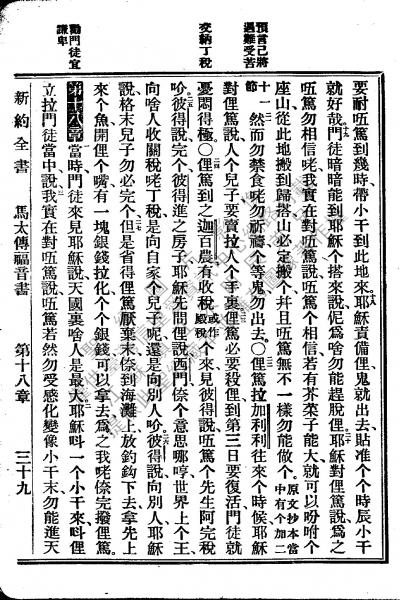 預言己將
過難受苦
交納丁稅
勸門徒宜
謙卑
要耐唔篤到幾時帶小干到此地來耶穌責備俚鬼就出去貼准个个時辰小干
就好哉門徒暗暗能到耶穌个搭來說伲為啥勿能趕脫俚耶穌對俚篤說為之
唔篤勿相信咾我實在對唔篤說唔篤个相信若有芥菜子能大就可以吩咐个
座山從此地搬到歸搭山必定搬个并且唔篤無不一樣勿能做个原文抄本當中有个加二
十一節然而勿禁食咾勿祈禱个等鬼勿出去○俚篤拉加利利往來个時候耶穌
對俚篤說人个兒子要賣拉人个手裏俚篤必要殺俚到第三日要復活門徒就
憂悶得極○俚篤到之迦百農有收稅或作殿稅个來見彼得說唔篤个先生阿完稅
吤彼得說完个彼得進之房子耶穌先問俚說西門倷个意思哪哼世界上个王
向啥人收關稅咾丁稅是向自家个兒子呢還是向別人吤彼得說向別人耶穌
說格末兒子勿必完个但是省得俚篤厭棄末倷到海灘上放釣鈎下去拿先上
來个魚開俚个嘴有一塊銀錢拉化个个銀錢可以拿去為之我咾倷完撥俚篤
第十八章當時門徒來見耶穌說天國裏啥人是最大耶穌呌一个小干來呌俚
立拉門徒當中說我實在對唔篤說唔篤若然勿受感化變像小干末勿能進天
新約全書 馬太傳福音書 第十八章 三十九